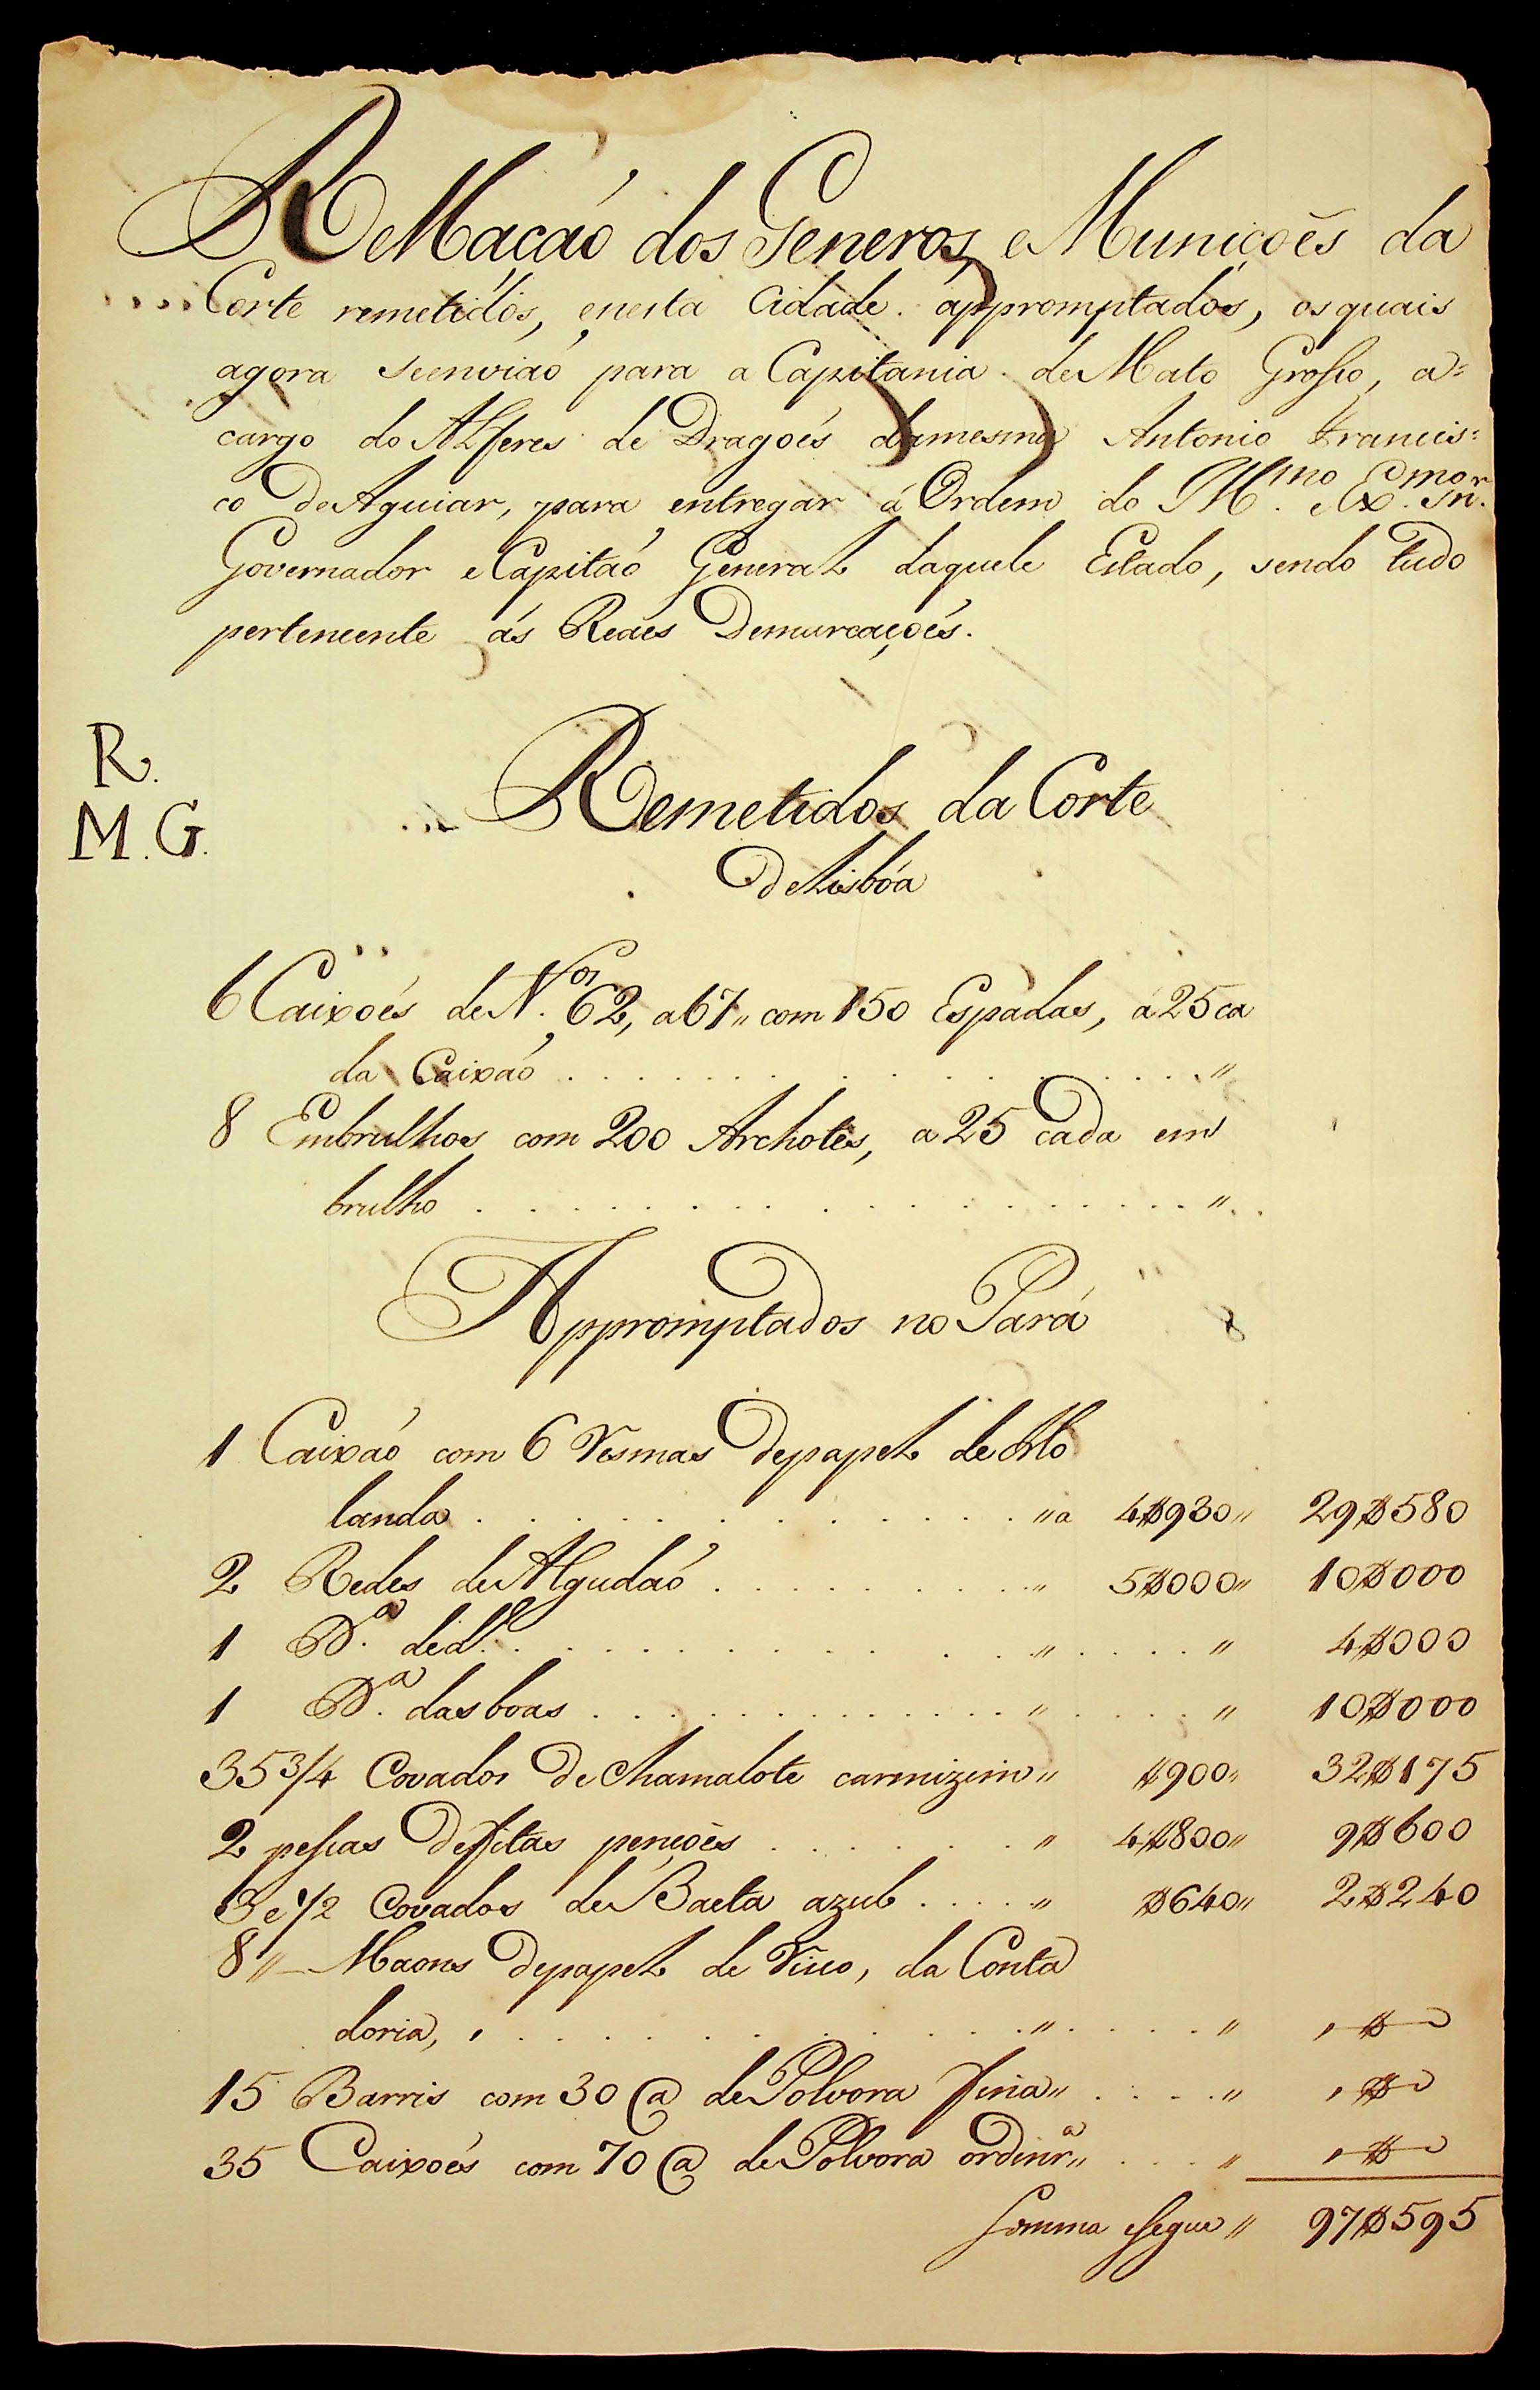 RMação dos Generos, e Muniçoẽs da
Corte remetidos, e nesta Cidade appromptados, os quais
agora se enviaõ para a Capitania de Mato Grosso, a=
cargo do Alferes de Dragoẽs da mesma Antonio Francis=
co de Aguiar, para entregar á Ordem do Ill.mo e Ex.mo Sn.r
Governador e Capitaõ General daquele Estado, sendo tudo
pertencente ás Reaes Demarcaçoẽs.
R.
M.G.
Remetidos da Corte
de Lisbóa
6 Caixoẽs de N.os 62, a 67 " com 150 Espadas, a 25 ca
da Caixaõ . . . "
8 Embrulhos com 200 Archotes, a 25 cada em
brulho . . . "
Appromptados no Pará
1 Caixaõ com 6 resmas de papel de Ho
landa . . . " a 4$930 " 29$580
2 Redes de Algudaõ . . . " 5$000 " 10$000
1 D.a de d.o . . . " . . . " 4$000
1 D.a das boas . . . " . . . " 10$000
35 3/4 Covados de Chamalote carmizim " $900 " 32$175
2 pessas de fitas . . . " 4$800 " 9$600
3 e 1/2 Covados de Baeta azul . . . " $640 " 2$240
8 " Maons de papel de rico, da Conta
doria, . . . " . . . " , $
15 Barris com 30 @ de Polvora fina " . . . " , $
35 Caixoẽs com 70 @ de Polvora ordinr.a " . . . " , $
Somma e segue " 97$595